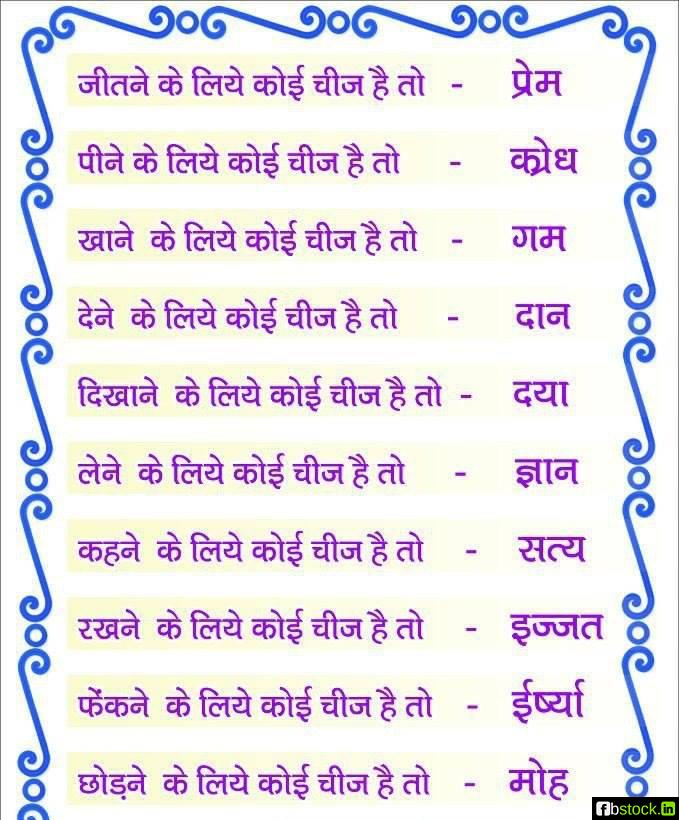 जीतने के लिये कोई चीज है तो - प्रेम
पीने के लिये कोई चीज है तो - क्रोध
खाने के लिये कोई चीज है तो - गम
देने के लिये कोई चीज है तो - दान
दिखाने के लिये कोई चीज है तो - दया
लेने के लिये कोई चीज है तो - ज्ञान
कहने के लिये कोई चीज है तो - सत्य
रखने के लिये कोई चीज है तो - इज्जत
फेंकने के लिये कोई चीज है तो - ईर्ष्या
छोड़ने के लिये कोई चीज है तो - मोह
fbstock.in